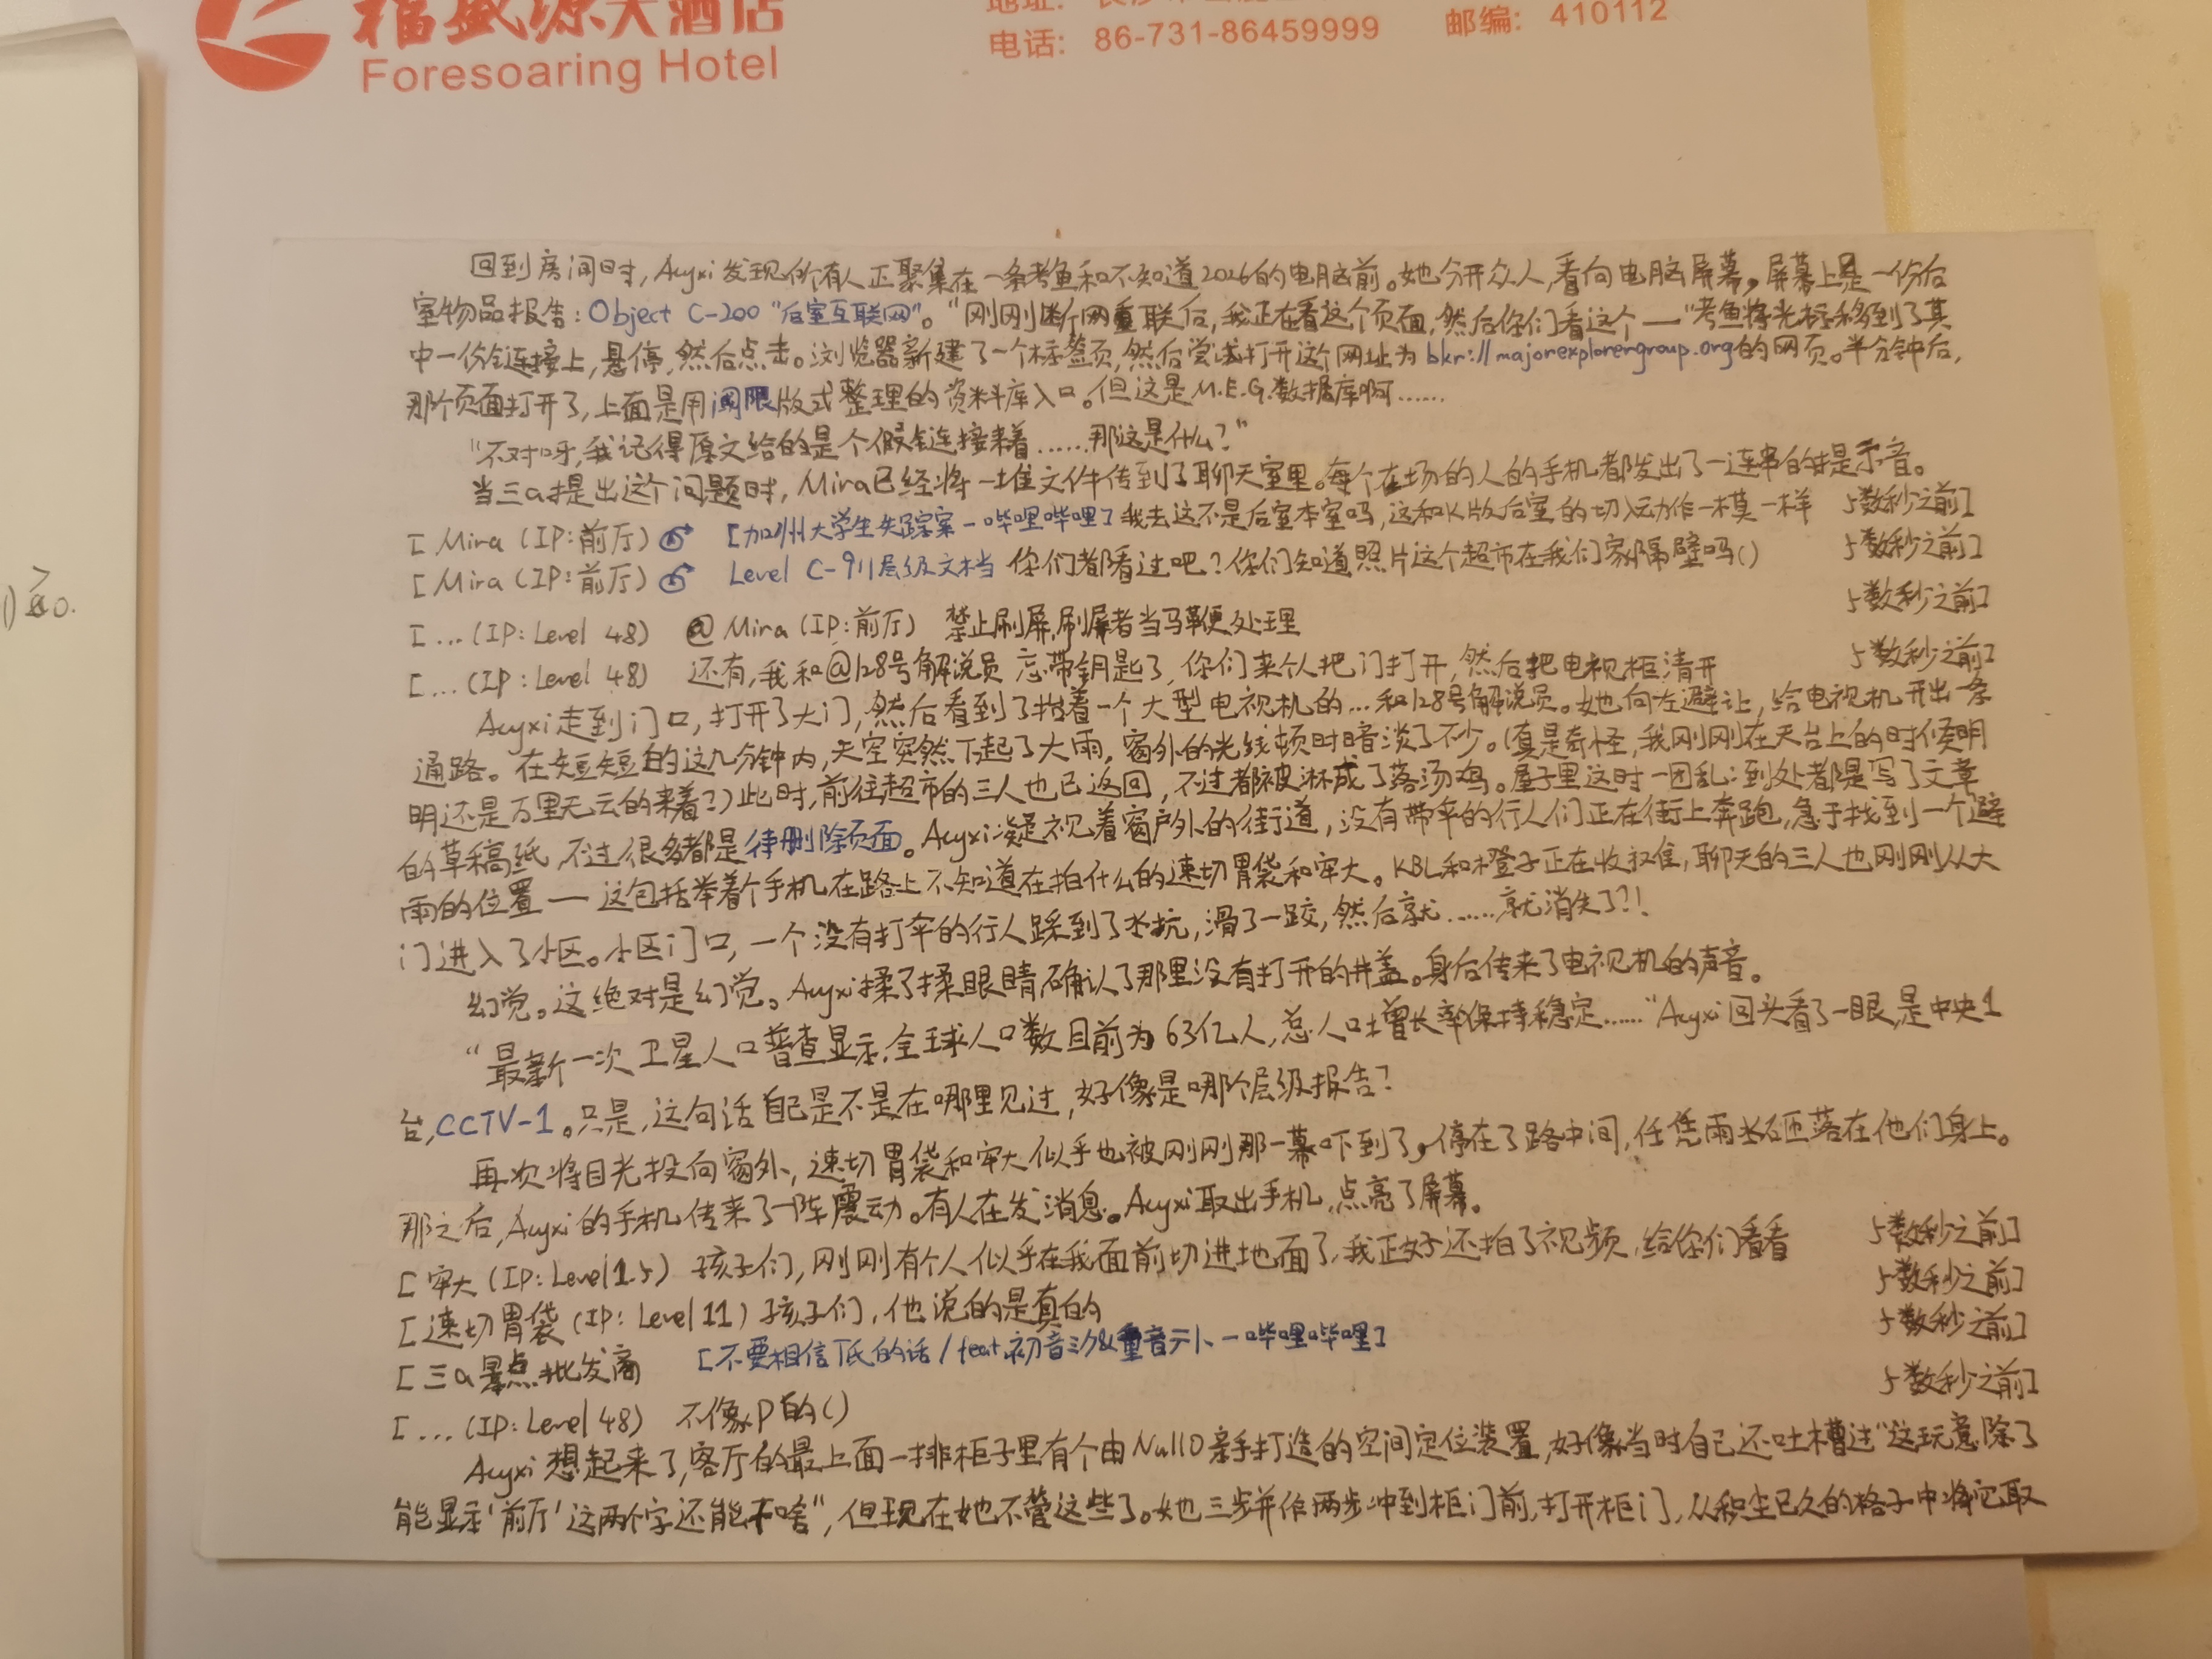 福盛源大酒店
Foresoaring Hotel
电话: 86-731-86459999 邮编: 410112
回到房间时,Acyxi发现所有人正聚集在一条考鱼和不知道2026的电脑前。她分开众人,看向电脑屏幕。屏幕上是一份后
室物品报告:Object C-200 "后室互联网"。"刚刚断网重联后,我正在看这个页面,然后你们看这个——"考鱼将光标移到了其
中一份链接上,悬停,然后点击。浏览器新建了一个标签页,然后尝试打开这个网址为bkr://majorexplorergroup.org的网页。半分钟后,
那个页面打开了,上面是用阈限版式整理的资料库入口。但这是M.E.G.数据库啊……
"不对呀,我记得原文给的是个假链接来着……那这是什么?"
当三a提出这个问题时,Mira已经将一堆文件传到了聊天室里。每个在场的人的手机都发出了一连串的提示音。
[Mira (IP:前厅) [加州大学生失踪案-哔哩哔哩] 我去这不是后室本室吗,这和K版后室的切入动作一模一样 5数秒之前]
[Mira (IP:前厅) Level C-911层级文档 你们都看过吧?你们知道照片这个超市在我们家隔壁吗() 5数秒之前]
[...(IP: Level 48) @Mira (IP:前厅) 禁止刷屏,刷屏者当马鞭处理 5数秒之前]
[...(IP: Level 48) 还有,我和@128号解说员 忘带钥匙了,你们来个人把门打开,然后把电视柜清开 5数秒之前]
Acyxi走到门口,打开了大门,然后看到了抬着一个大型电视机的...和128号解说员。她向左避让,给电视机开出一条
通路。在短短的这几分钟内,天空突然下起了大雨,窗外的光线顿时暗淡了不少。(真是奇怪,我刚刚在天台上的时候明
明还是万里无云的来着?)此时,前往超市的三人也已返回,不过都被淋成了落汤鸡。屋子里这时一团乱:到处都是写了文章
的草稿纸,不过很多都是待删除页面。Acyxi凝视着窗户外的街道,没有带伞的行人们正在街上奔跑,急于找到一个避
雨的位置——这包括举着个手机在路上不知道在拍什么的速切胃袋和牢大。KBL和橙子正在收衣准,聊天的三人也刚刚从大
门进入了小区。小区门口,一个没有打伞的行人踩到了水坑,滑了一跤,然后就……就消失了?!
幻觉。这绝对是幻觉。Acyxi揉了揉眼睛,确认了那里没有打开的井盖。身后传来了电视机的声音。
"最新一次卫星人口普查显示,全球人口数目前为63亿人,总人口增长率保持稳定……"Acyxi回头看了一眼,是中央1
台,CCTV-1。只是,这句话自己是不是在哪里见过,好像是哪个层级报告?
再次将目光投向窗外,速切胃袋和牢大似乎也被刚刚那一幕吓到了,停在了路中间,任凭雨水砸落在他们身上。
那之后,Acyxi的手机传来了一阵震动。有人在发消息。Acyxi取出手机,点亮了屏幕。
[牢大 (IP: Level 1.5) 孩子们,刚刚有个人似乎在我面前切进地面了,我正好还拍了视频,给你们看看 5数秒之前]
[速切胃袋 (IP: Level 11) 孩子们,他说的是真的 5数秒之前]
[三a景点批发商 [不要相信T氏的话/feat.初音ミク&重音テト-哔哩哔哩] 5数秒之前]
[...(IP: Level 48) 不像P的() 5数秒之前]
Acyxi想起来了,客厅的最上面一排柜子里有个由Null0亲手打造的空间定位装置,好像当时自己还吐槽过"这玩意除了
能显示'前厅'这两个字还能干啥",但现在她不管这些了。她三步并作两步冲到柜门前,打开柜门,从积尘已久的格子中将它取